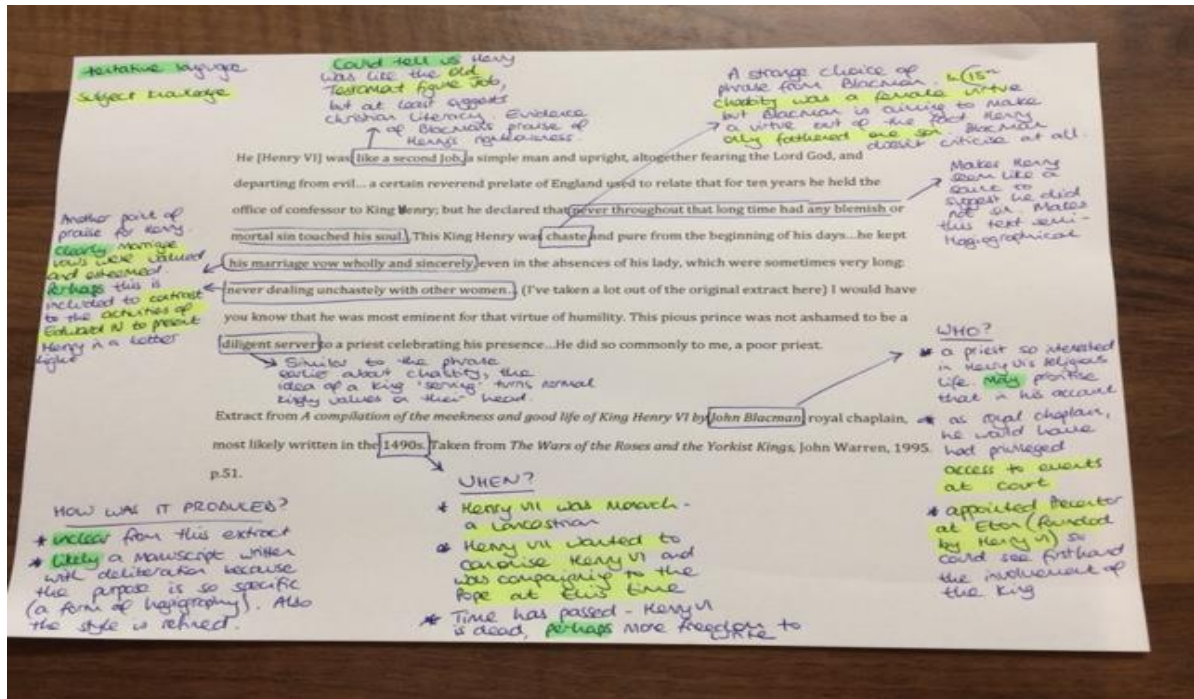 tentative language
subject knowledge
Could tell us Henry
was like the old
Testament figure Job,
but at least suggests
Christian literacy. Evidence
of Blacman's praise of
Henry's righteousness
A strange choice of
phrase from Blacman. In 15th
chastity was a female virtue
but Blacman is aiming to make
a virtue out of the fact Henry
only fathered one son. Blacman
doesn't criticise at all.
He [Henry VI] was like a second Job, a simple man and upright, altogether fearing the Lord God, and
departing from evil... a certain reverend prelate of England used to relate that for ten years he held the
office of confessor to King Henry; but he declared that never throughout that long time had any blemish or
mortal sin touched his soul. This King Henry was chaste and pure from the beginning of his days...he kept
his marriage vow wholly and sincerely, even in the absences of his lady, which were sometimes very long:
never dealing unchastely with other women... (I've taken a lot out of the original extract here) I would have
you know that he was most eminent for that virtue of humility. This pious prince was not ashamed to be a
diligent server to a priest celebrating his presence...He did so commonly to me, a poor priest.
Makes Henry
seem like a
saint to
suggest he did
not sin. Makes
this text semi-
Hagiographical
Another point of
praise for Henry.
Clearly marriage
vows were valued
and esteemed.
Perhaps this is
included to contrast
to the activities of
Edward IV to present
Henry in a better
light
Similar to the phrase
earlier about chastity, the
idea of a king 'serving' turns normal
kingly values on their head.
Extract from A compilation of the meekness and good life of King Henry VI by John Blacman, royal chaplain,
most likely written in the 1490s. Taken from The Wars of the Roses and the Yorkist Kings, John Warren, 1995.
p.51.
WHO?
* a priest so interested
in Henry VI's religious
life. May prioritise
that in his account
* as royal chaplain,
he would have
had privileged
access to events
at court
* appointed Precentor
at Eton (founded
by Henry VI) so
could see firsthand
the involvement of
the King
HOW WAS IT PRODUCED?
* unclear from this extract
* likely a manuscript written
with deliberation because
the purpose is so specific
(a form of hagiography). Also
the style is refined.
WHEN?
* Henry VII was Monarch -
a Lancastrian
* Henry VII wanted to
canonise Henry VI and
was campaigning to the
Pope at this time
* Time has passed - Henry VI
is dead, perhaps more freedom to
write